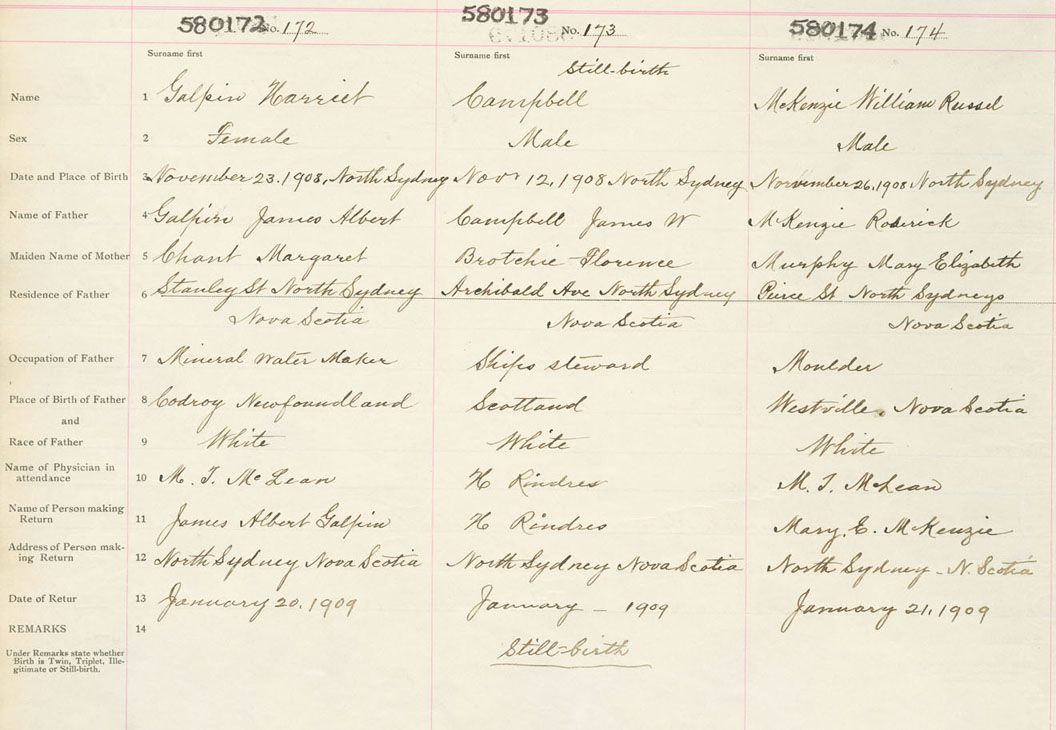 580172 No. 172 580173 No. 173 580174 No. 174
Surname first Surname first Surname first
Still-birth
Name 1 Galpin Harriet Campbell McKenzie William Russel
Sex 2 Female Male Male
Date and Place of Birth 3 November 23. 1908, North Sydney Nov 12, 1908 North Sydney November 26, 1908 North Sydney
Name of Father 4 Galpin James Albert Campbell James W McKenzie Roderick
Maiden Name of Mother 5 Chant Margaret Brotchie Florence Murphy Mary Elizabeth
Residence of Father 6 Stanley St North Sydney Archibald Ave North Sydney Peirce St North Sydneys
Nova Scotia Nova Scotia Nova Scotia
Occupation of Father 7 Mineral Water Maker Ships steward Moulder
Place of Birth of Father 8 Codroy Newfoundland Scotland Westville, Nova Scotia
and
Race of Father 9 White White White
Name of Physician in
attendance 10 M. T. McLean H Rindres M. T. McLean
Name of Person making
Return 11 James Albert Galpin H Rindres Mary. E. McKenzie
Address of Person mak-
ing Return 12 North Sydney Nova Scotia North Sydney Nova Scotia North Sydney - N. Scotia
Date of Retur 13 January 20. 1909 January - 1909 January 21, 1909
REMARKS 14
Under Remarks state whether
Birth is Twin, Triplet, Ille-
gitimate or Still-birth.
Still-birth